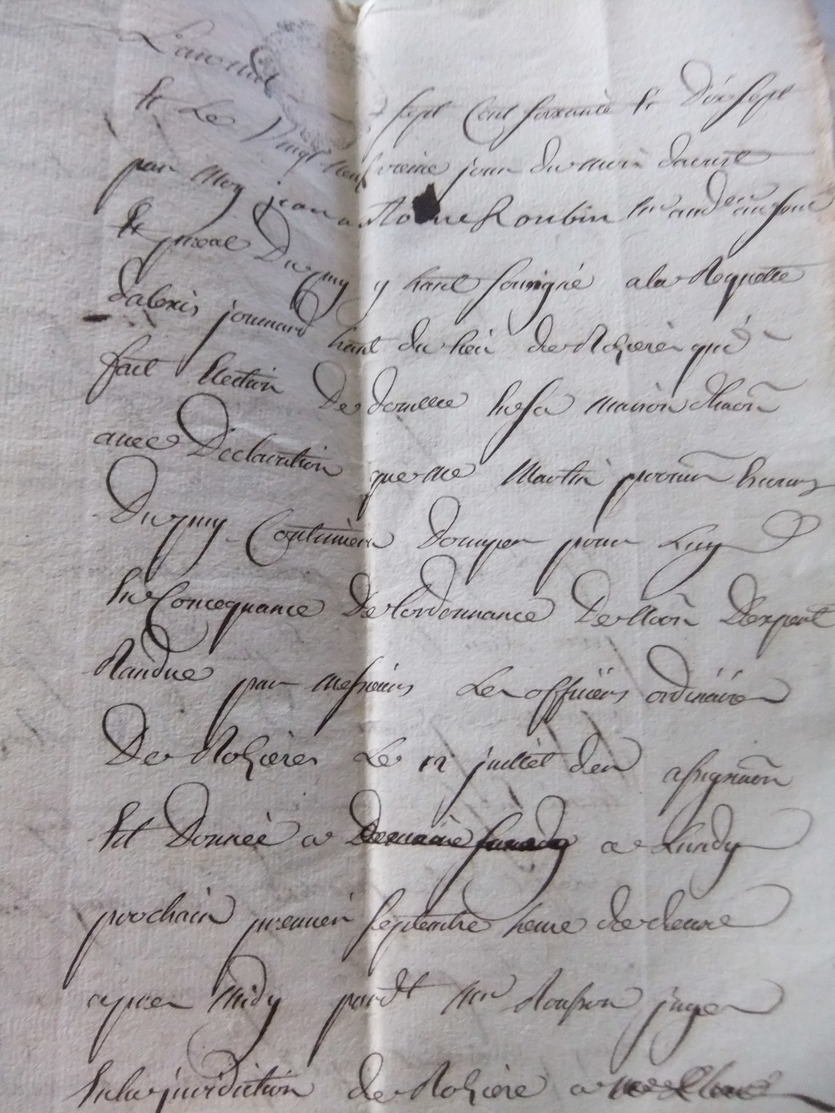 L'an mil sept Cent soixante & dix sept
& Le vingt neuf vieme jour du mois daoust
par moy jean antoine Roubin
& royal Du puy y hant soussigné a la Requette
dalexis joumard hant du lieu de Rozieres qui
fait Election De domicille en sa maison dhaon
avec Declaration que me Martin
Du puy Continuera doccuper pour Luy
En Concequance De lordonnance De Dexpert
Randue par messieurs Les officiers ordinaires
De Rozieres Le 12 juillet der assignaon
Est Donnée a a Lundy
prochain premier septembre heure de deux
apres Midy pardt Mr juge
En la jurisdiction de Roziere a